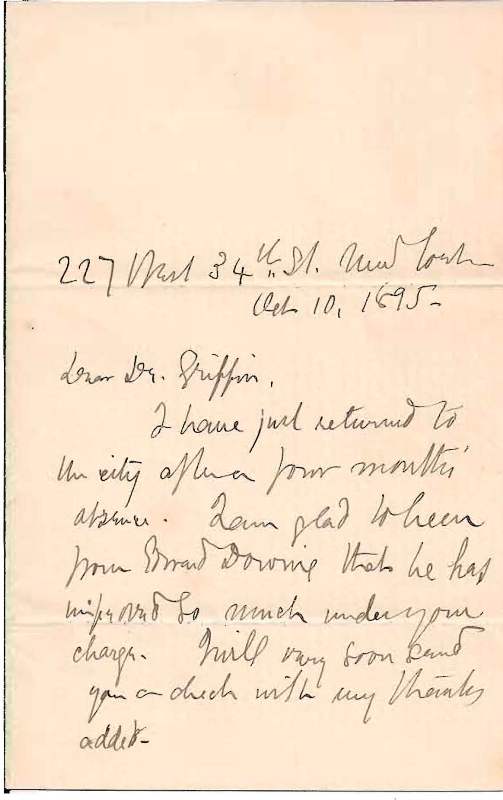 227 West 34th St. New York
Oct 10, 1895-
Dear Dr. Griffin,
I have just returned to
the city after a four months'
absence. I am glad to hear
from Edward Dowing that he has
improved so much under your
charge. I will very soon send
you a check with my thanks
added-